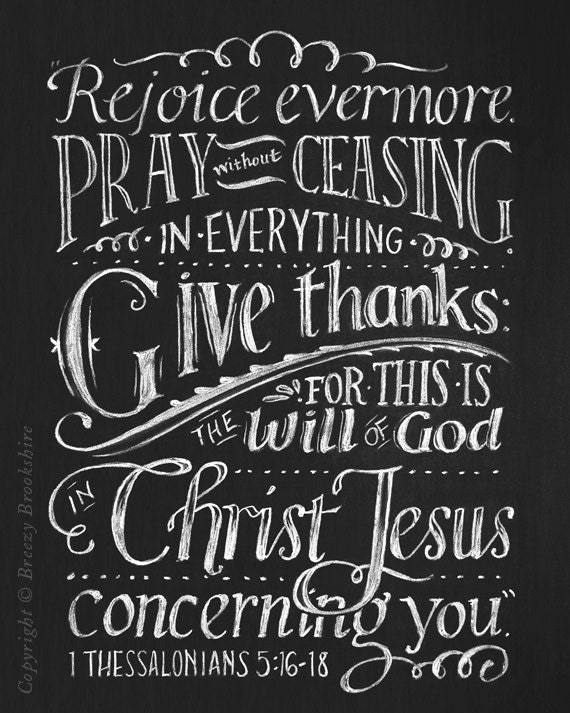 "Rejoice evermore.
PRAY without CEASING.
IN·EVERYTHING
GIVE thanks:
FOR·THIS·IS
THE Will OF God
IN Christ Jesus
concerning you."
1 THESSALONIANS 5:16-18
Copyright © Breezy Brookshire